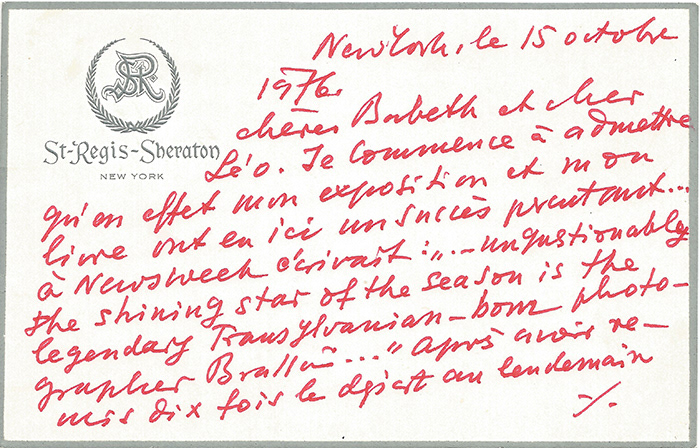 SR
St-Regis-Sheraton
NEW YORK
New York, le 15 octobre
1976
chères Babeth et cher
Léo. Je commence à admettre
qu'en effet mon exposition et mon
livre ont eu ici un succès
à Newsweek écrivait : „...unquestionably
the shining star of the season is the
legendary Transylvanian-born photo-
grapher Brassaï..." Après avoir re-
mis dix fois le départ au lendemain
./.